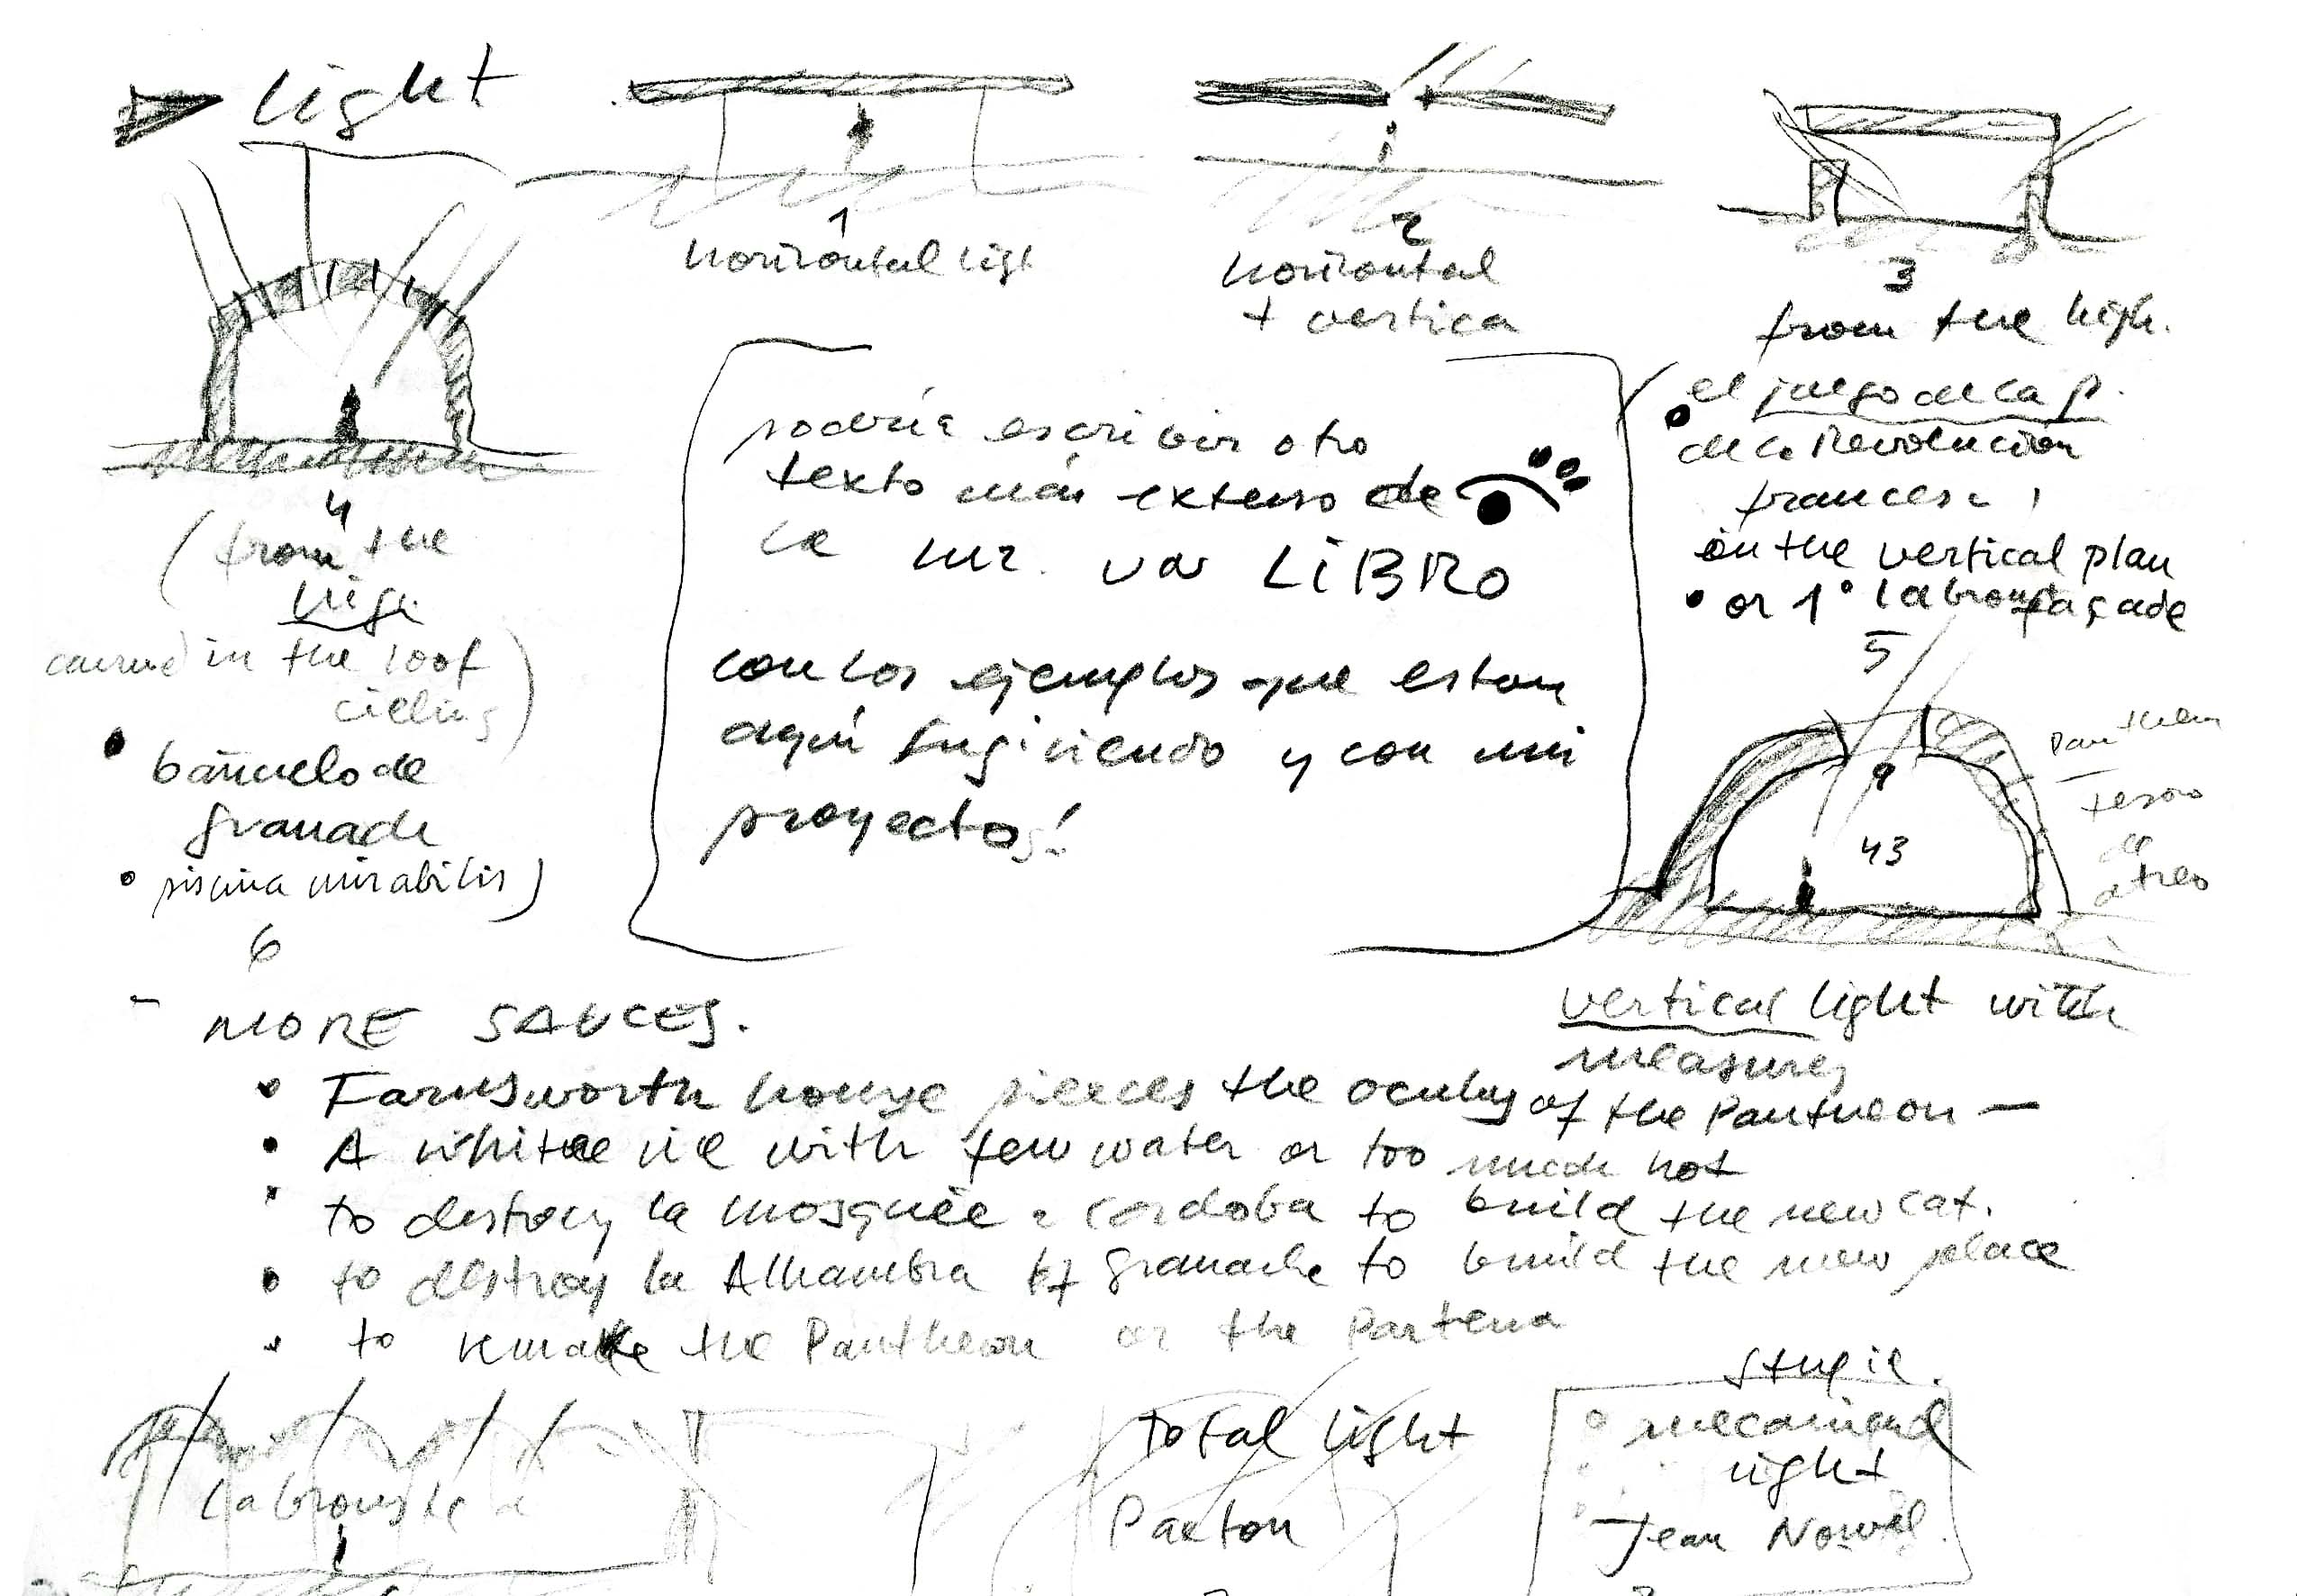 light
1
horizontal ligh
2
horizontal
+ vertica
3
from the high.
el juego de la p.
de la Revolución
francesa,
in the vertical plan
or 1° labrou façade
4
(from the
high
in the roof
cieling)
bañuelo de
granade
piscina mirabilis)
6
podría escribir otro
texto más extenso de
la luz. un LiBRO
con los ejemplos que estan
aquí sugiriendo y con mi
proyectos!
5
9
43
Pantheon
tesoro
de
atreo
vertical light with
measures
MORE SAUCES.
Farnsworth house pierces the oculus of the Pantheon —
A white rice with few water or too much hot
to destroy la mosquée a cordoba to build the new cat.
to destroy la Alhambra of granade to build the new place
to remake the Pantheon or the Partena
Labrouste
total light
Paxton
light
Jean Nouvel